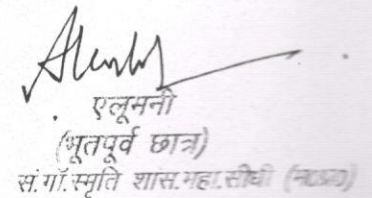 एलूमनी
(भूतपूर्व छात्र)
सं.गॉ.स्मृति शास.महा.सीधी (म0प्र0)